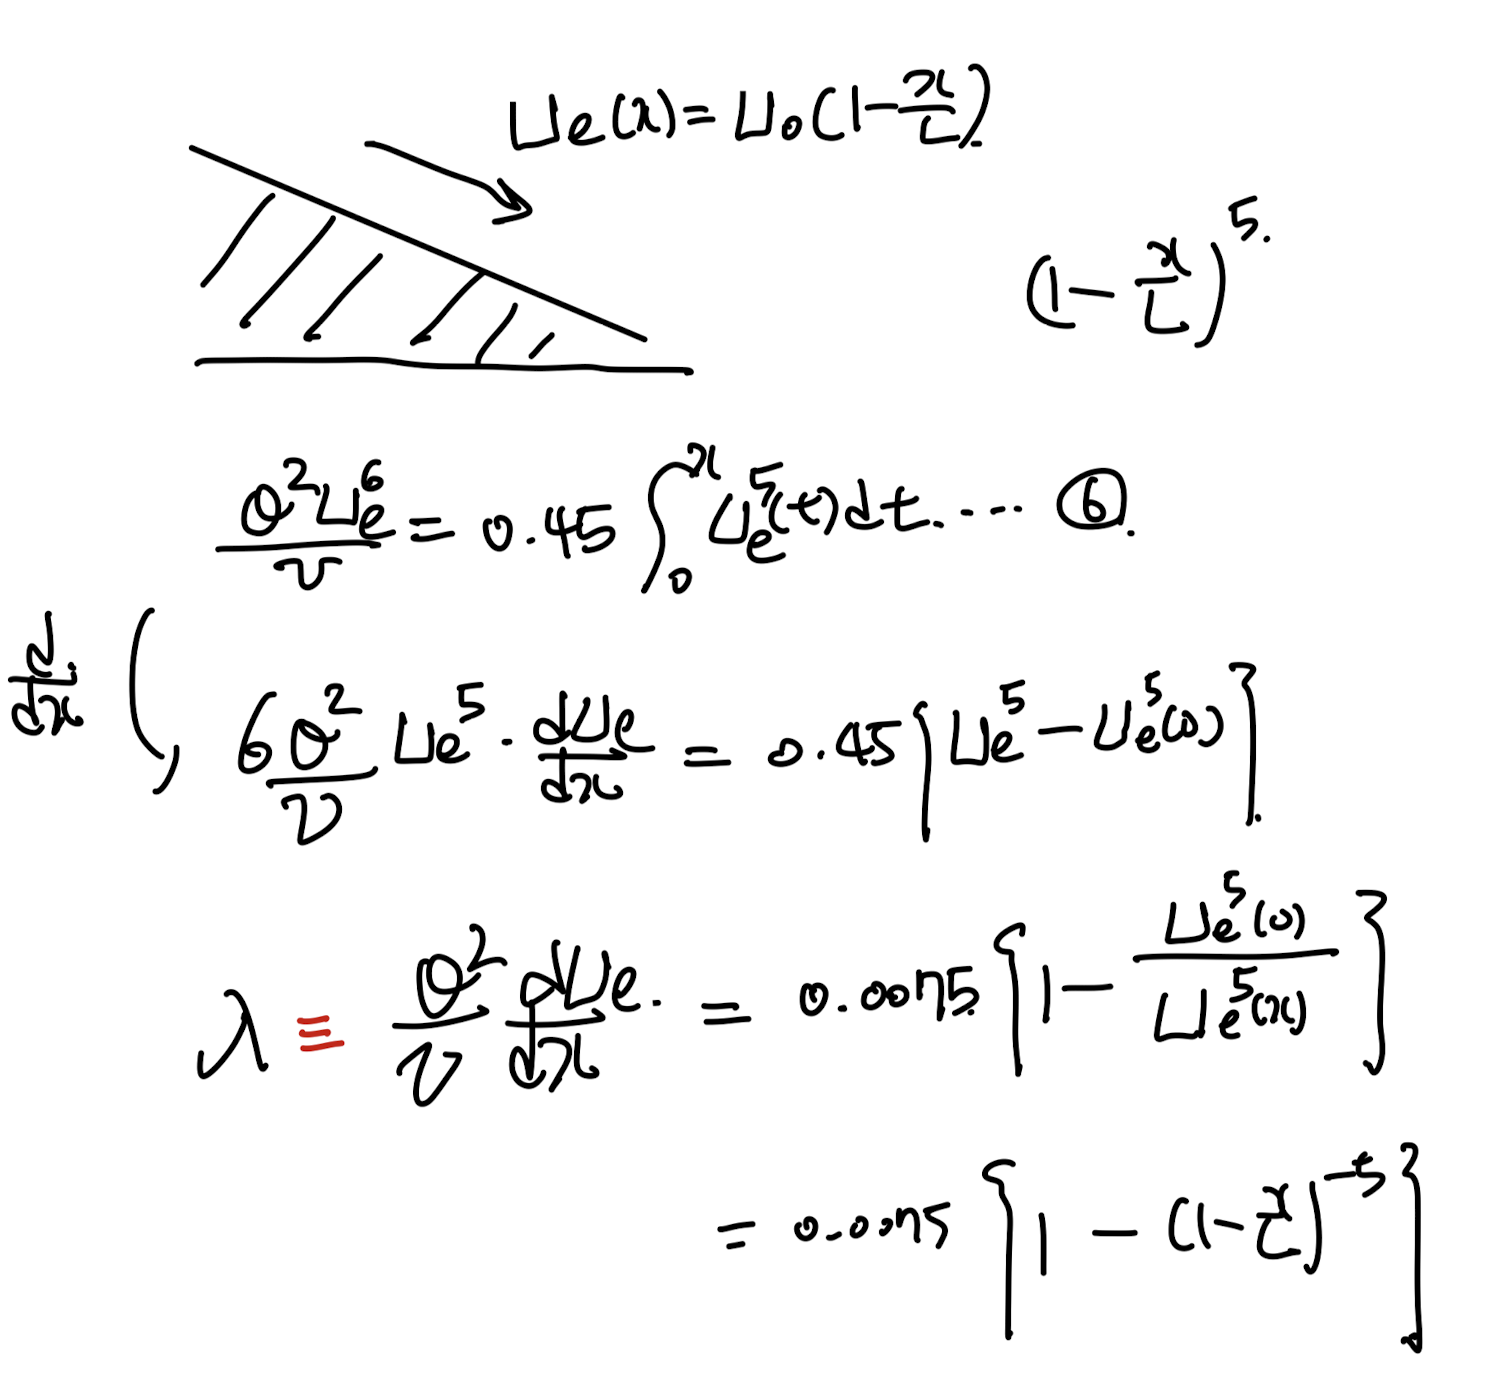 Ue(x) = U₀(1 - x/L).
(1 - x/L)⁵.
θ²Ue⁶/ν = 0.45 ∫₀ˣ Ue⁵(t)dt. ... ⑥.
d/dx (, 6θ²/ν Ue⁵ · dUe/dx = 0.45 { Ue⁵ - Ue⁵(0) }.
λ ≡ θ²/ν dUe/dx. = 0.0075 { 1 - Ue⁵(0)/Ue⁵(x) }
= 0.0075 { 1 - (1 - x/L)⁻⁵ }